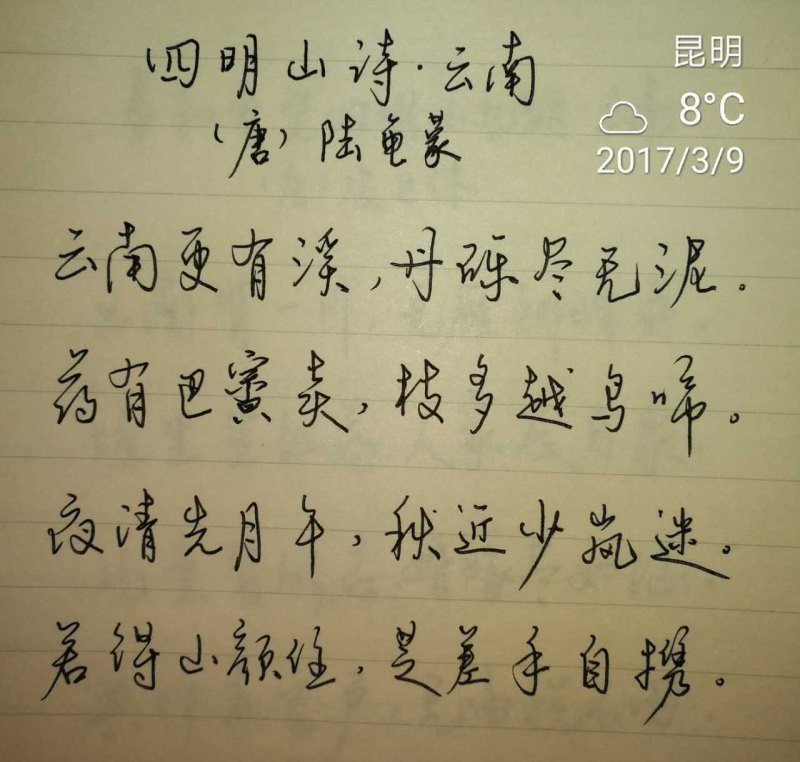 四明山诗·云南
(唐)陆龟蒙
昆明
8°C
2017/3/9
云南更有溪,丹砾尽无泥.
药有巴賨卖,枝多越鸟啼。
夜清先月午,秋近少岚迷。
若得山颜住,是差手自携。